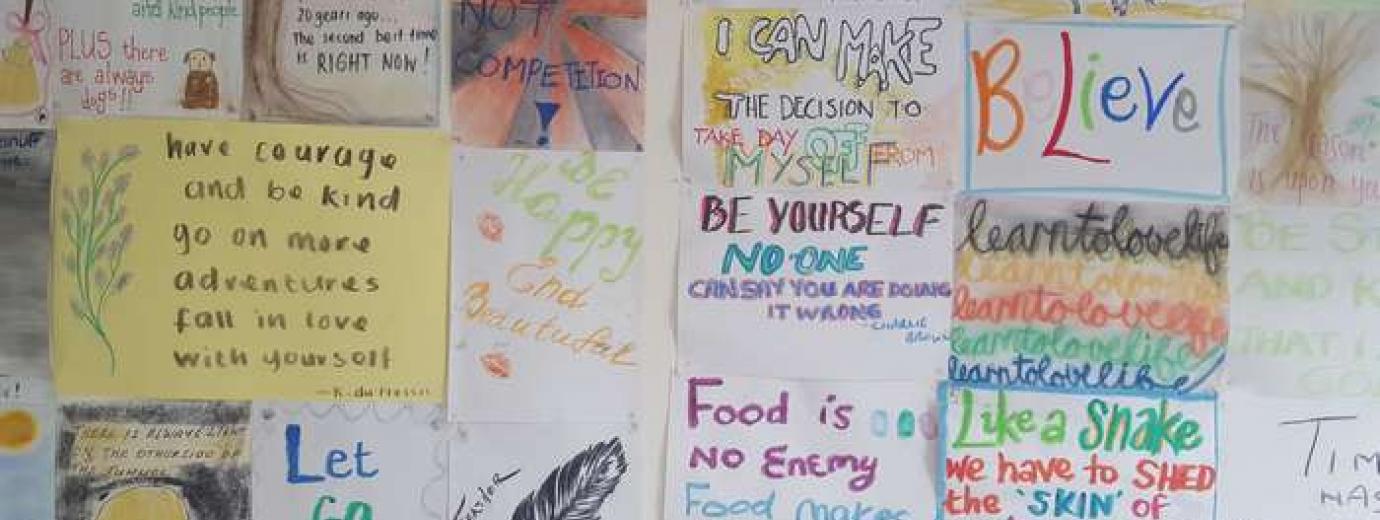 and kind people
PLUS there
are always
dogs!!
20 years ago...
The second best time
is RIGHT NOW!
NOT
COMPETITION
!
I CAN MAKE
THE DECISION TO
TAKE DAY OFF FROM
MYSELF
BeLieve
The reason
is upon you
have courage
and be kind
go on more
adventures
fall in love
with yourself
BE
Happy
End
Beautufal
BE YOURSELF
NO-ONE
CAN SAY YOU ARE DOING
IT WRONG
Charlie
Brown
learntolovelife
learntolovelife
learntolovelife
learntolovelife
learntolovelife
BE ST
AND K
THAT I
GO
THERE IS ALWAYS LIGHT
THE OTHERSIDE OF
THE TUNNEL
Let
Go
Food is
No Enemy
Food makes
Like a Snake
we have to SHED
the 'SKIN' of
TIM
HAS